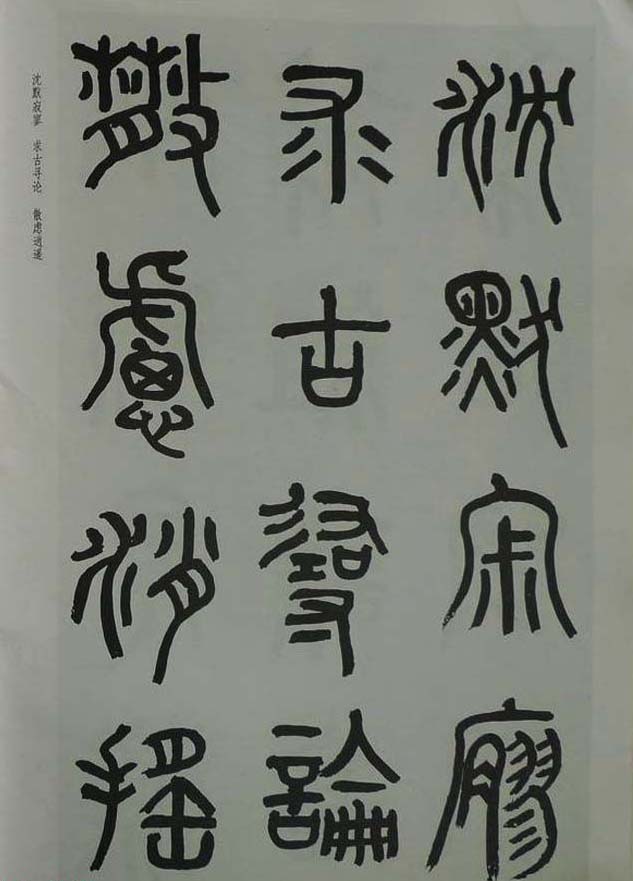 沈默寂廖
求古尋論
散慮消搖
沈默寂寥 求古寻论 散虑逍遥